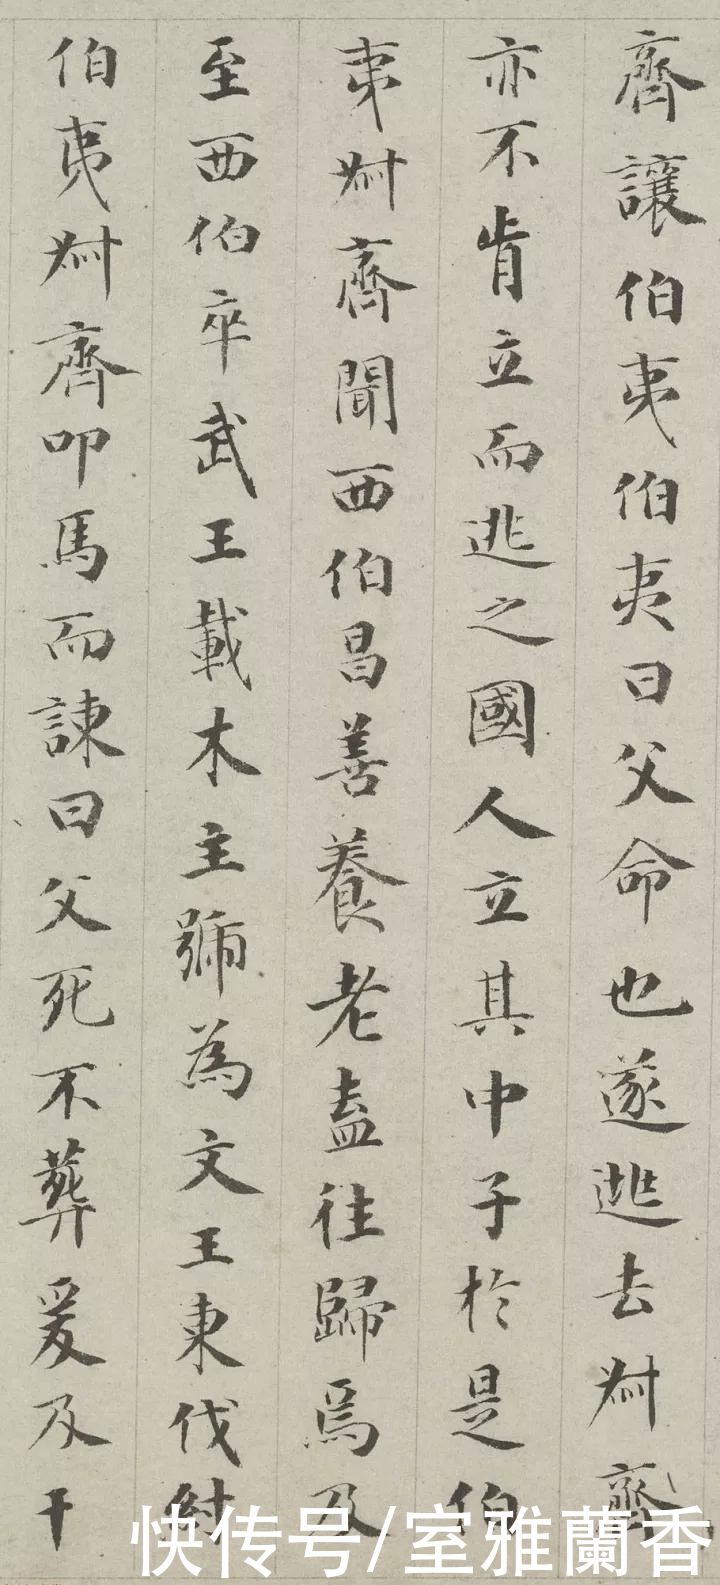 齊讓伯夷伯夷曰父命也遂逃去叔齊
亦不肯立而逃之國人立其中子於是伯
夷叔齊聞西伯昌善養老盍往歸焉及
至西伯卒武王載木主號為文王東伐紂
伯夷叔齊叩馬而諫曰父死不葬爰及干
快传号/室雅蘭香